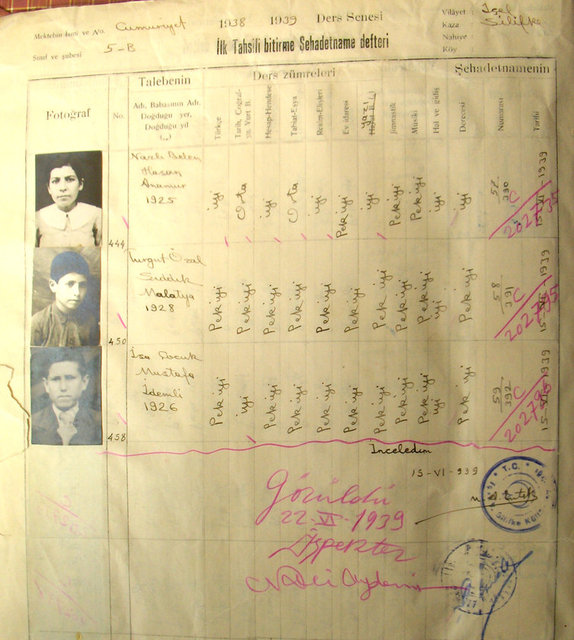 Mektebin ismi ve No. Cumuriyet
Sınıf ve şubesi 5-B
1938 1939 Ders Senesi
İlk Tahsili bitirme Şehadetname defteri
Vilâyet : İçel
Kaza : Silifke
Nahiye :
Köy :
Fotoğraf
No.
Talebenin
Adı, Babasının Adı,
Doğduğu yer,
Doğduğu yıl
Ders zümreleri
Türkçe
Tarih, Coğraf-
ya, Yurt B.
Hesap-Hendese
Tabiat-Eşya
Resim-Elişleri
Ev idaresi
yazı
Jimnastik
Musiki
Hal ve gidiş
Şehadetnamenin
Derecesi
Numarası
Tarihi
444
Hasan
Anamur
1925
iyi
Orta
iyi
Orta
iyi
Pek iyi
iyi
Pek iyi
Pek iyi
iyi
iyi
57
390
C
15-VI-1939
450
Turgut Özal
Sıddık
Malatya
1928
Pek iyi
Pek iyi
Pek iyi
Pek iyi
Pek iyi
Pek iyi
Pek iyi
Pek iyi
Pek iyi
Pek iyi
Pek iyi
58
391
C
15-VI-1939
458
İsa Çocuk
Mustafa
İdemli
1926
Pek iyi
iyi
Pek iyi
Pek iyi
Pek iyi
Pek iyi
Pek iyi
Pek iyi
Pek iyi
Pek iyi
Pek iyi
59
392
C
15-VI-1939
İnceledim
15-VI-939
T.C.
Görüldü
22-VI-1939
İspekter